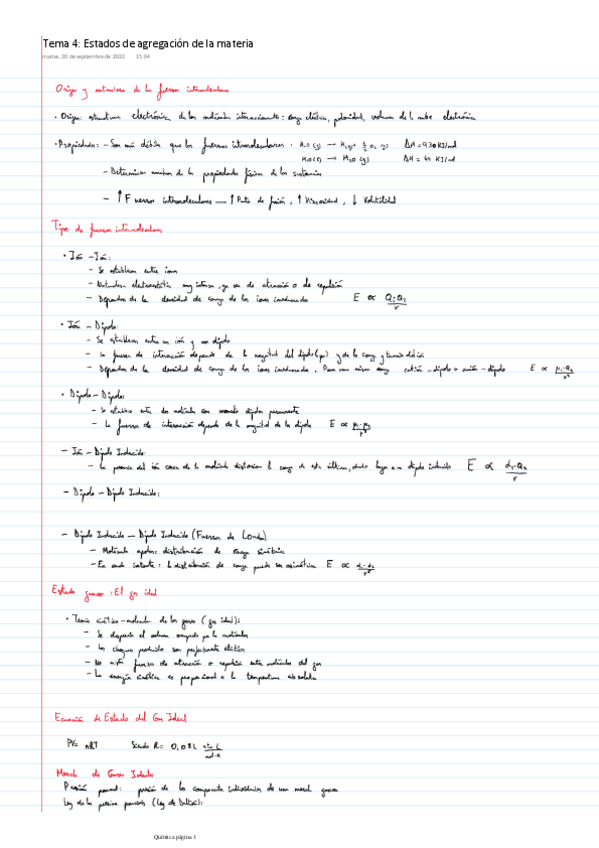 Tema 4: Estados de agregación de la materia
martes, 20 de septiembre de 2022 15:04
Origen y naturaleza de las fuerzas intermoleculares
· Origen: estructura electrónica de las moléculas interaccionantes: carga eléctrica, polaridad, volumen de la nube electrónica
· Propiedades: - Son más débiles que las fuerzas intramoleculares. ΔH = 930 KJ/mol
H2O (l) → H2O (g) ΔH = 44 KJ/mol
- Determinan muchas de las propiedades físicas de las sustancias
- ↑ Fuerzas intermoleculares → ↑ Punto de fusión, ↑ Viscosidad, ↓ Volatilidad
Tipos de fuerzas intermoleculares
· Ión - Ión:
- Se establecen entre iones
- electrostática muy intensa, ya sea de atracción o de repulsión
- Dependen de la densidad de carga de los iones involucrados E ∝ Q1·Q2/r
· Ión - Dipolo:
- Se establecen entre un ión y un dipolo
- La fuerza de interacción depende de la magnitud del dipolo (μ) y de la carga y tamaño del ión
- Dependen de la densidad de carga de los iones involucrados. Para una misma carga catión - dipolo > anión - dipolo E ∝
· Dipolo - Dipolo:
- Se establece entre dos moléculas con momento dipolar permanente
- La fuerza de interacción depende de la magnitud de los dipolos E ∝
- Ión - Dipolo Inducido:
- La presencia del ión cerca de la molécula distorsiona la carga de esta última, dando lugar a un dipolo inducido E ∝
- Dipolo - Dipolo Inducido:
- Dipolo Inducido - Dipolo Inducido (Fuerzas de London)
- Moléculas apolares: distribución de carga simétrica
- En cada instante: la distribución de carga puede ser asimétrica E ∝
Estado gaseoso: El gas ideal
· Teoría cinético-molecular de los gases (gas ideal):
- Se desprecia el volumen ocupado por las moléculas
- Los choques producidos son perfectamente elásticos
- No existe fuerza de atracción o repulsión entre moléculas del gas
- La energía cinética es proporcional a la temperatura absoluta
Ecuación de Estado del Gas Ideal
PV = nRT Siendo R = 0,082 atm·L/mol·K
Mezcla de Gases Ideales
Presión parcial: presión de los componentes individuales de una mezcla gaseosa
Ley de las presiones parciales (Ley de Dalton):
Química página 1